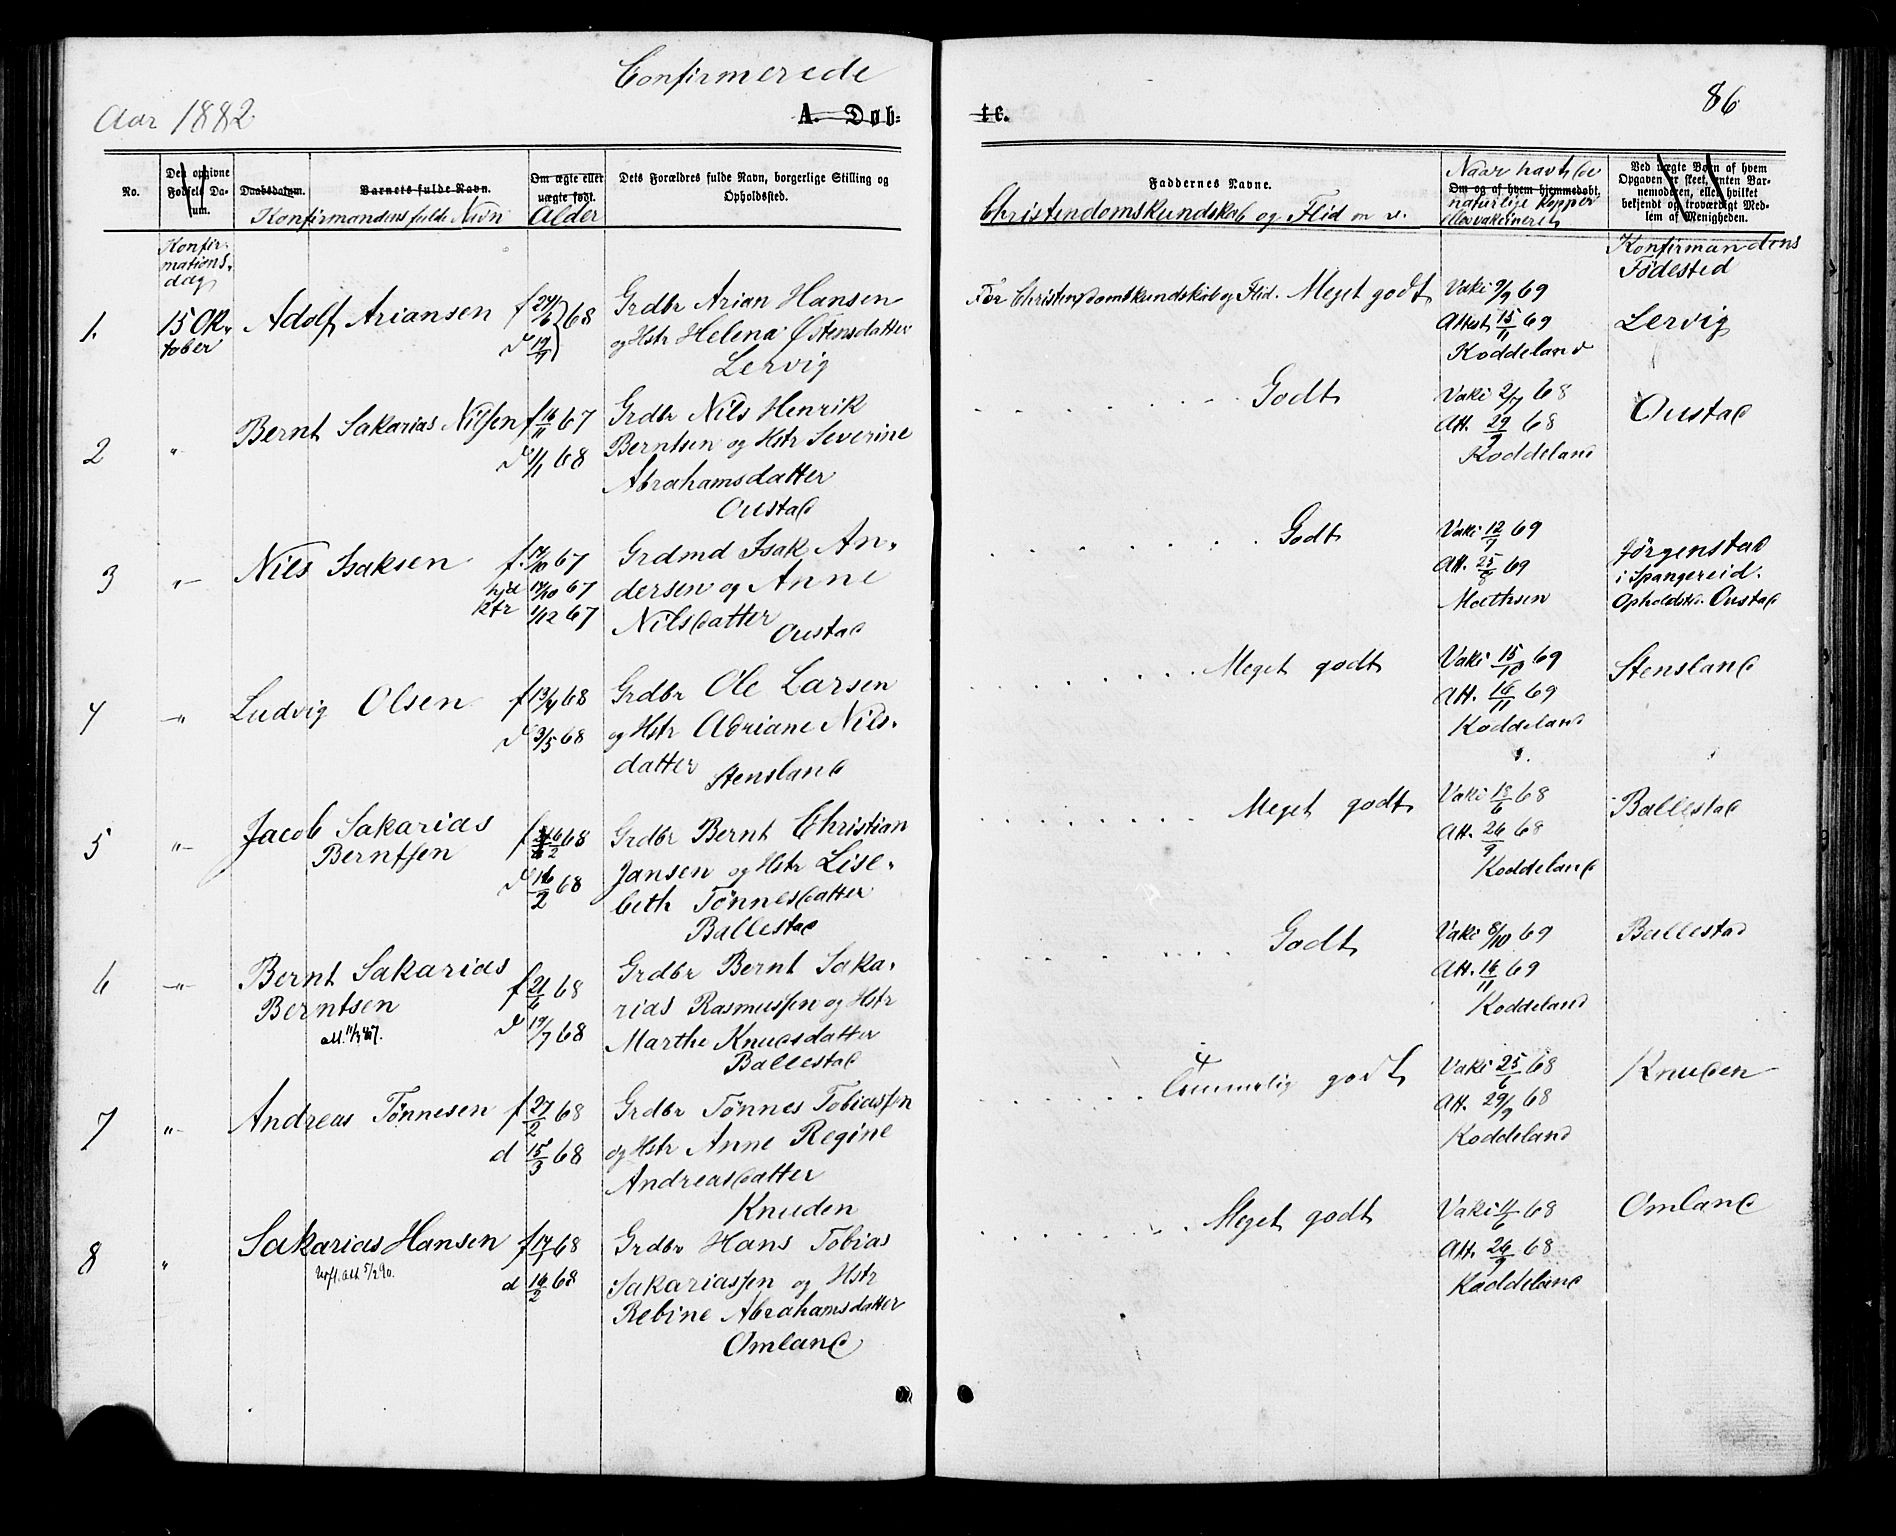 Confirmerede
Aar 1882
A. Døb-
te.
86
No.
Den opgivne Fødsels Datum.
Daabsdatum.
Barnets fulde Navn.
Konfirmandens fulde Navn
Om ægte eller uægte født.
Alder
Dets Forældres fulde Navn, borgerlige Stilling og Opholdssted.
Faddernes Navne.
Christendomskundskab og Flid m. v.
Naar havt de
Om og af hvem hjemmedøbt.
naturlige Kopper
eller vakcineret
Ved uægte Børn af hvem
Opgaven er skeet, enten Barnemoderen, eller hvilket
bekjendt og troværdigt Medlem af Menigheden.
Konfirmandens
Fødested
Konfir-
mations-
dag
1. 15 Ok-
tober
Adolf Ariansen
f 24/6 68
d 19/7
Grdbr Arian Hansen
og Hstr Helena Østensdatter
Lervig
For Christendomskundskab og Flid. Meget godt
Vaki 9/9 69
Attest 15/11 69
Koddeland
Lervig
2 "
Bernt Sakarias Nilssen
f 16/11 67
d 1/1 68
Grdbr Nils Henrik
Berntsen og Hstr Severine
Abrahamsdatter
Oustad
Godt
Vaki 2/7 68
Att. 29/9 68
Koddeland
Oustad
3 "
Nils Isaksen
f. 17/10 67
hjd 17/10 67
kfr 1/12 67
Grdmd Isak An-
dersen og Anne
Nilsdatter
Oustad
Godt
Vaki 12/7 69
Att. 25/8 69
Mathsen
Jørgenstad
i Spangereid.
Opholdstd. Oustad
4 "
Ludvig Olsen
f 13/4 68
d 3/5 68
Grdbr Ole Larsen
og Hstr Adriane Nils-
datter
Stensland
Meget godt
Vaki 15/10 69
Att. 16/11 69
Koddeland
Stensland
5 "
Jacob Sakarias
Berntsen
f 6/2 68
d 16/2 68
Grdbr Bernt Christian
Jansen og Hstr Lise-
beth Tønnesdatter
Ballestad
Meget godt
Vaki 18/6 68
Att. 26/9 68
Koddeland
Ballestad
6 "
Bernt Sakarias
Berntsen
f 21/6 68
d 19/7 68
Grdbr Bernt Saka-
rias Rasmussen og Hstr
Marthe Knudsdatter
Ballestad
Godt
Vaki 8/10 69
Att. 16/11 69
Koddeland
Ballestad
7 "
Andreas Tønnesen
f 27/2 68
d 15/3 68
Grdbr Tønnes Tobiassen
og Hstr Anne Regine
Andreasdatter
Knuden
Temmelig godt
Vaki 25/6 68
Att. 29/9 68
Koddeland
Knuden
8 "
Sakarias Hansen
f 17/1 68
d 16/2 68
Grdbr Hans Tobias
Sakariassen og Hstr
Rebine Abrahamsdatter
Omland
Meget godt
Vaki 11/6 68
Att. 26/9 68
Koddeland
Omland